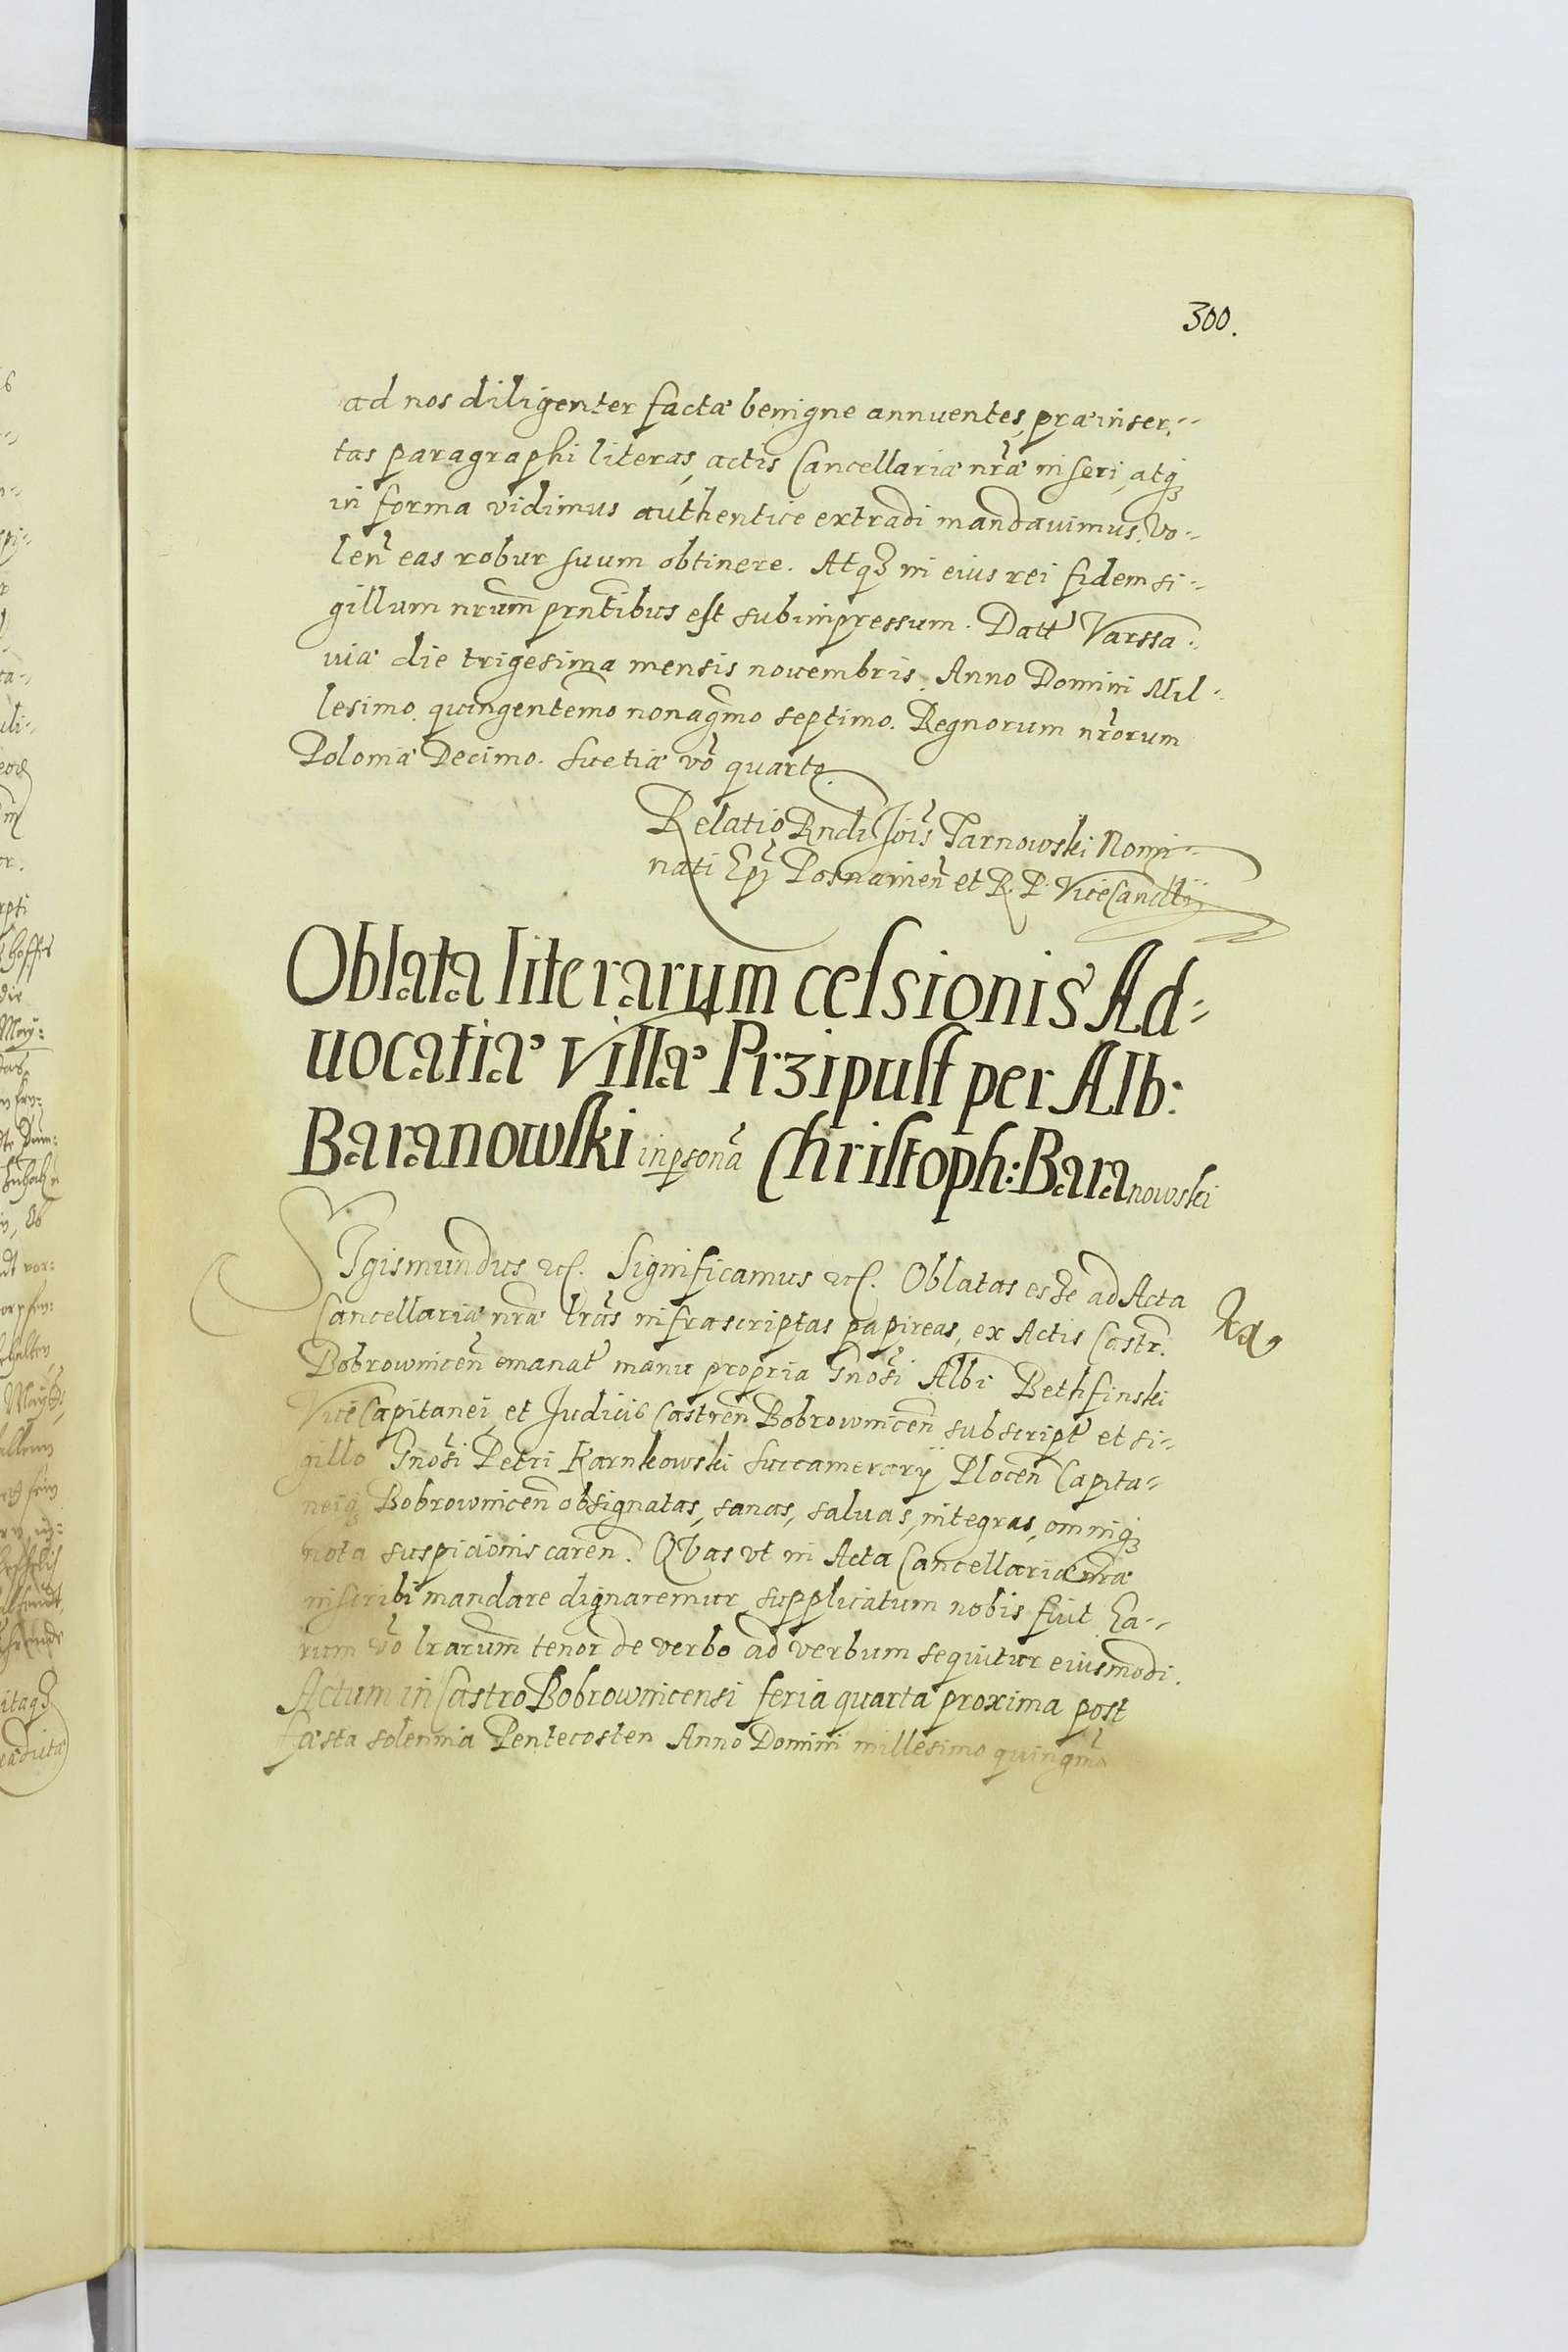 300.
ad nos diligenter factæ benigne annuentes, præinser-
tas paragraphi literas, actis Cancellariæ nr̃æ inseri, atq3
in forma vidimus authentice extradi mandauimus, vo-
len̄ eas robur suum obtinere. Atq3 in eius rei fidem si-
gillum nrum̄ prn̄tibus est subimpressum. Datt̃ Varssa-
uiæ die trigesima mensis nouembris, Anno Domini Mil-
lesimo quingentem̄o nonagm̄o septimo. Regnorum nr̃orum
Poloniæ Decimo. Suetiæ vō quarto.
Relatio Rndi Jois̃ Tarnowski Nomi-
nati Epi Posnanien̄ et R. P. ViceCancllrij
Oblata literarum celsionis Ad-
uocatiæ Villæ Przipust per Alb:
Baranowski in psona Christoph: Baranowski
SIgismundus etc. Significamus etc. Oblatas esse ad Acta
Cancellariæ nræ lrãs infrascriptas papireas, ex Actis Castr.
Bobrownicen̄ emanat̃ manu propria Gnosi Albi Bethfinski
ViceCapitanei et Judicis Castren̄ Bobrownicen̄ subscript̃ et si-
gillo Gnosi Petri Karnkowski Succamerarij Plocen̄ Capita-
neiq3 Bobrownicen̄ obsignatas, sanas, saluas, integras, omniq3
nota suspicionis caren̄. QVas vt in Acta Cancellariæ nræ
inscribi mandare dignaremur supplicatum nobis fuit Ea-
rum vō lrarum̄ tenor de verbo ad verbum sequitur eiusmodi.
Actum in Castro Bobrownicensi feria quarta proxima post
fæsta solennia Pentecosten Anno Domini millesimo quingm̄o